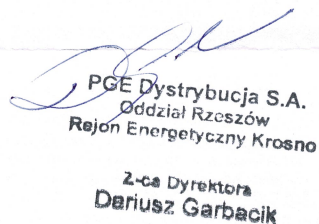 PGE Dystrybucja S.A.
Oddział Rzeszów
Rejon Energetyczny Krosno
Z-ca Dyrektora
Dariusz Garbacik